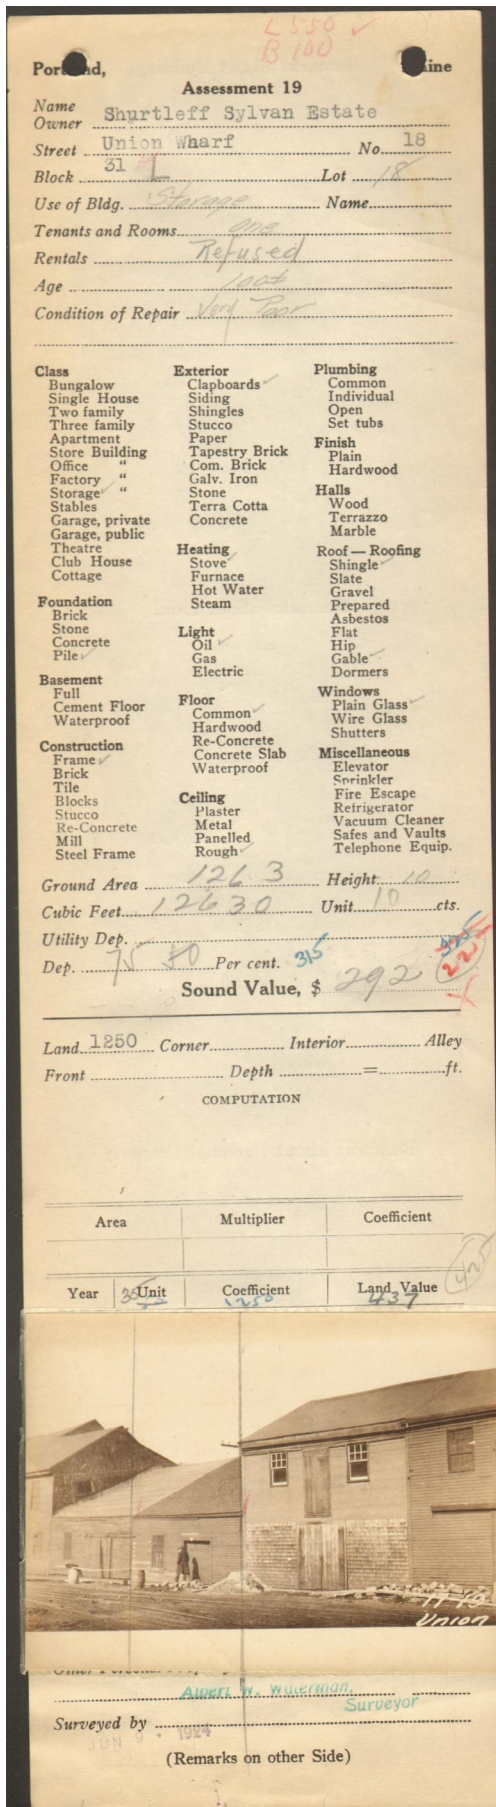 L 550 ✓
B 100
Portland, Maine
Assessment 19
Name
Owner Shurtleff Sylvan Estate
Street Union Wharf No. 18
Block 31 L Lot 18
Use of Bldg. Storage Name
Tenants and Rooms one
Rentals Refused
Age 100±
Condition of Repair Very Poor
Class
Bungalow
Single House
Two family
Three family
Apartment
Store Building
Office "
Factory "
Storage ✓ "
Stables
Garage, private
Garage, public
Theatre
Club House
Cottage
Foundation
Brick
Stone
Concrete
Pile ✓
Basement
Full
Cement Floor
Waterproof
Construction
Frame ✓
Brick
Tile
Blocks
Stucco
Re-Concrete
Mill
Steel Frame
Exterior
Clapboards ✓
Siding
Shingles
Stucco
Paper
Tapestry Brick
Com. Brick
Galv. Iron
Stone
Terra Cotta
Concrete
Heating
Stove ✓
Furnace
Hot Water
Steam
Light
Oil ✓
Gas
Electric
Floor
Common ✓
Hardwood
Re-Concrete
Concrete Slab
Waterproof
Ceiling
Plaster
Metal
Panelled
Rough ✓
Plumbing
Common
Individual
Open
Set tubs
Finish
Plain
Hardwood
Halls
Wood
Terrazzo
Marble
Roof — Roofing
Shingle ✓
Slate
Gravel
Prepared
Asbestos
Flat
Hip
Gable ✓
Dormers
Windows
Plain Glass ✓
Wire Glass
Shutters
Miscellaneous
Elevator
Sprinkler
Fire Escape
Refrigerator
Vacuum Cleaner
Safes and Vaults
Telephone Equip.
Ground Area 1263 Height 10
Cubic Feet 12630 Unit 10 cts.
Utility Dep.
Dep. 75 50 Per cent. 315
Sound Value, $ 292
Land 1250 Corner Interior Alley
Front Depth = ft.
COMPUTATION
Area Multiplier Coefficient
425
Year 35 Unit Coefficient Land Value
1250 437
17-19
Union
Albert W. Waterman,
Surveyor
Surveyed by
JUN 9 - 1924
(Remarks on other Side)